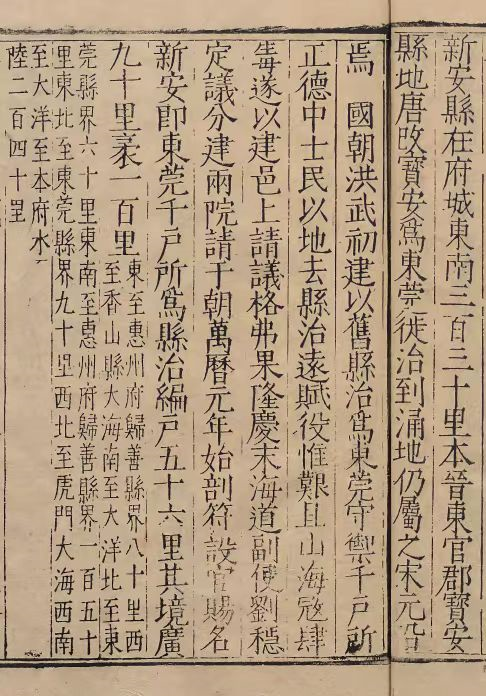 新安縣在府城東南三百三十里本晉東官郡寶安
縣地唐改寶安爲東莞徙治到涌地仍屬之宋元沿
焉 國朝洪武初建以舊縣治爲東莞守禦千戶所
正德中士民以地去縣治遠賦役惟艱且山海寇肆
毒遂以建邑上請議格弗果隆慶末海道副使劉穩
定議分建兩院請于朝萬曆元年始剖符設官賜名
新安即東莞千戶所爲縣治編戶五十六里其境廣
九十里袤一百里東至惠州府歸善縣界八十里西
至香山縣大海南至大洋北至東
莞縣界六十里東南至惠州府歸善縣界一百五十
里東北至東莞縣界九十里西北至虎門大海西南
至大洋至本府水
陸二百四十里